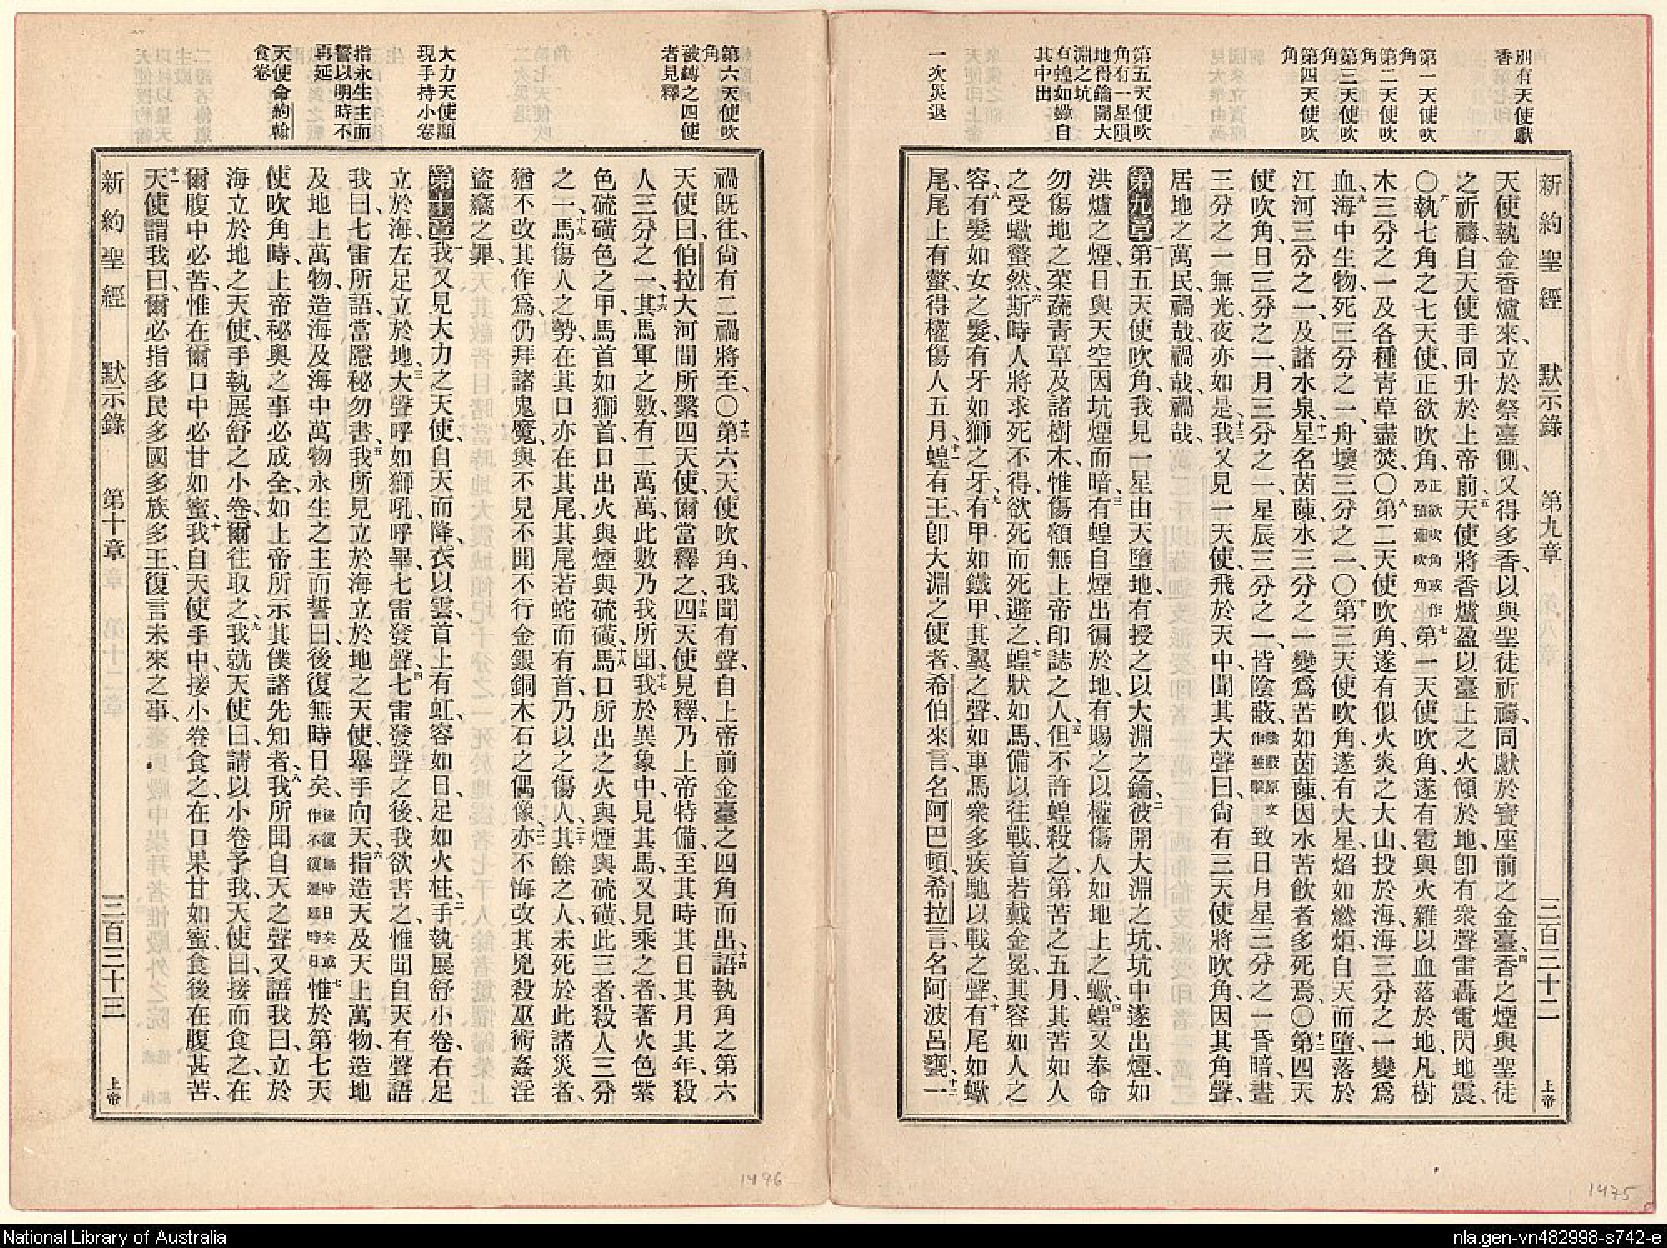 別有天使獻
香
第一天使吹
角
第二天使吹
角
第三天使吹
角
第四天使吹
角
第五天使吹
角有一星隕
地得鑰開大
淵之坑
有蝗如蠍自
其中出
一次災退
新約聖經 默示錄 第九章 三百三十二 上帝
天使執金香爐來立於祭臺側又得多香以與聖徒祈禱同獻於寶座前之金臺四香之煙與聖徒
之祈禱自天使手同升於上帝前五天使將香爐盈以臺上之火傾於地卽有衆聲雷轟電閃地震
〇六執七角之七天使正欲吹角正欲吹角或作乃預備吹角七第一天使吹角遂有雹與火雜以血落於地凡樹
木三分之一及各種靑草盡焚〇八第二天使吹角遂有似火炎之大山投於海海三分之一變爲
血九海中生物死三分之一舟壞三分之一〇十第三天使吹角遂有大星焰如燃炬自天而墮落於
江河三分之一及諸水泉十一星名茵蔯水三分之一變爲苦如茵蔯因水苦飮者多死焉〇十二第四天
使吹角日三分之一月三分之一星辰三分之一皆陰蔽陰蔽原文作被擊致日月星三分之一昏暗晝
三分之一無光夜亦如是十三我又見一天使飛於天中聞其大聲曰尙有三天使將吹角因其角聲
居地之萬民禍哉禍哉禍哉
第九章一第五天使吹角我見一星由天墮地有授之以大淵之鑰二彼開大淵之坑坑中遂出煙如
洪爐之煙日與天空因坑煙而暗三有蝗自煙出徧於地有賜之以權傷人如地上之蠍四蝗又奉命
勿傷地之菜蔬靑草及諸樹木惟傷額無上帝印誌之人五但不許蝗殺之第苦之五月其苦如人
之受蠍螫然六斯時人將求死不得欲死而死避之七蝗狀如馬備以往戰首若戴金冕其容如人之
容八有髮如女之髮有牙如獅之牙九有甲如鐵甲其翼之聲如車馬衆多疾馳以戰之聲十有尾如蠍
尾尾上有螫得權傷人五月十一蝗有王卽大淵之使者希伯來言名阿巴頓希拉言名阿波呂䪥十二一
第六天使吹
角
被縛之四使
者見釋
大力天使顯
現手持小卷
指永生主而
誓以明時不
再延
天使命約翰
食卷
禍旣往尙有二禍將至〇十三第六天使吹角我聞有聲自上帝前金臺之四角而出十四語執角之第六
天使曰伯拉大河間所繫四天使爾當釋之十五四天使見釋乃上帝特備至其時其日其月其年殺
人三分之一十六其馬軍之數有二萬萬此數乃我所聞十七我於異象中見其馬又見乘之者著火色紫
色硫磺色之甲馬首如獅首口出火與煙與硫磺十八馬口所出之火與煙與硫磺此三者殺人三分
之一十九馬傷人之勢在其口亦在其尾其尾若蛇而有首乃以之傷人二十其餘之人未死於此諸災者
猶不改其作爲仍拜諸鬼魔與不見不聞不行金銀銅木石之偶像二一亦不悔改其兇殺巫術姦淫
盜竊之罪
第十章一我又見大力之天使自天而降衣以雲首上有虹容如日足如火柱二手執展舒小卷右足
立於海左足立於地三大聲呼如獅吼呼畢七雷發聲四七雷發聲之後我欲書之惟聞自天有聲語
我曰七雷所語當隱秘勿書五我所見立於海立於地之天使舉手向天六指造天及天上萬物造地
及地上萬物造海及海中萬物永生之主而誓曰後復無時日矣後復無時日矣或作不復遲延時日七惟於第七天
使吹角時上帝秘奧之事必成全如上帝所示其僕諸先知者八我所聞自天之聲又語我曰立於
海立於地之天使手執展舒之小卷爾往取之九我就天使曰請以小卷予我天使曰接而食之在
爾腹中必苦惟在爾口中必甘如蜜十我自天使手中接小卷食之在口果甘如蜜食後在腹甚苦
十一天使謂我曰爾必指多民多國多族多王復言未來之事
新約聖經 默示錄 第十章 三百三十三 上帝
1496
1495
National Library of Australia
nla.gen-vn482998-s742-e